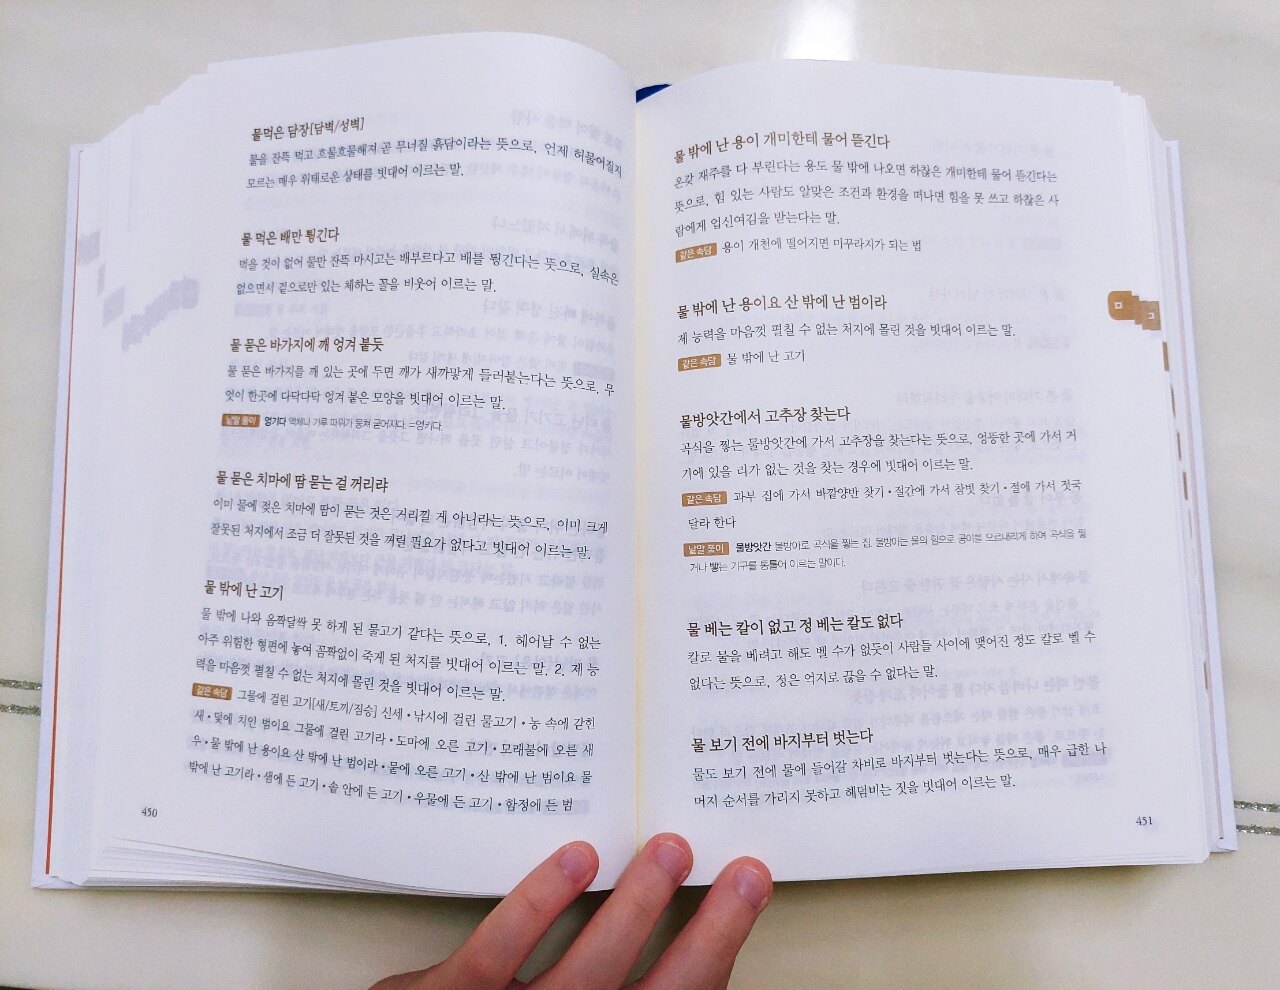 물먹은 담장[담벽/성벽]
물을 잔뜩 먹고 흐물흐물해져 곧 무너질 흙담이라는 뜻으로, 언제 허물어질지
모르는 매우 위태로운 상태를 빗대어 이르는 말.
물 먹은 배만 튕긴다
먹을 것이 없어 물만 잔뜩 마시고는 배부르다고 배를 튕긴다는 뜻으로, 실속은
없으면서 겉으로만 있는 체하는 꼴을 비웃어 이르는 말.
물 묻은 바가지에 깨 엉겨 붙듯
물 묻은 바가지를 깨 있는 곳에 두면 깨가 새까맣게 들러붙는다는 뜻으로, 무
엇이 한곳에 다닥다닥 엉겨 붙은 모양을 빗대어 이르는 말.
낱말 풀이 엉기다 액체나 가루 따위가 뭉쳐 굳어지다. =엉키다.
물 묻은 치마에 땀 묻는 걸 꺼리랴
이미 물에 젖은 치마에 땀이 묻는 것은 거리낄 게 아니라는 뜻으로, 이미 크게
잘못된 처지에서 조금 더 잘못된 것을 꺼릴 필요가 없다고 빗대어 이르는 말.
물 밖에 난 고기
물 밖에 나와 옴짝달싹 못 하게 된 물고기 같다는 뜻으로, 1. 헤어날 수 없는
아주 위험한 형편에 놓여 꼼짝없이 죽게 된 처지를 빗대어 이르는 말. 2. 제 능
력을 마음껏 펼칠 수 없는 처지에 몰린 것을 빗대어 이르는 말.
같은 속담 그물에 걸린 고기[새/토끼/짐승] 신세 • 낚시에 걸린 물고기 • 농 속에 갇힌
새 • 덫에 치인 범이요 그물에 걸린 고기라 • 도마에 오른 고기 • 모래불에 오른 새
우 • 물 밖에 난 용이요 산 밖에 난 범이라 • 뭍에 오른 고기 • 산 밖에 난 범이요 물
밖에 난 고기라 • 샘에 든 고기 • 솥 안에 든 고기 • 우물에 든 고기 • 함정에 든 범
450
물 밖에 난 용이 개미한테 물어 뜯긴다
온갖 재주를 다 부린다는 용도 물 밖에 나오면 하찮은 개미한테 물어 뜯긴다는
뜻으로, 힘 있는 사람도 알맞은 조건과 환경을 떠나면 힘을 못 쓰고 하찮은 사
람에게 업신여김을 받는다는 말.
같은 속담 용이 개천에 떨어지면 미꾸라지가 되는 법
물 밖에 난 용이요 산 밖에 난 범이라
제 능력을 마음껏 펼칠 수 없는 처지에 몰린 것을 빗대어 이르는 말.
같은 속담 물 밖에 난 고기
물방앗간에서 고추장 찾는다
곡식을 찧는 물방앗간에 가서 고추장을 찾는다는 뜻으로, 엉뚱한 곳에 가서 거
기에 있을 리가 없는 것을 찾는 경우에 빗대어 이르는 말.
같은 속담 과부 집에 가서 바깥양반 찾기 • 절간에 가서 참빗 찾기 • 절에 가서 젓국
달라 한다
낱말 풀이 물방앗간 물방아로 곡식을 찧는 집. 물방아는 물의 힘으로 공이를 오르내리게 하여 곡식을 찧
거나 빻는 기구를 통틀어 이르는 말이다.
물 베는 칼이 없고 정 베는 칼도 없다
칼로 물을 베려고 해도 벨 수가 없듯이 사람들 사이에 맺어진 정도 칼로 벨 수
없다는 뜻으로, 정은 억지로 끊을 수 없다는 말.
물 보기 전에 바지부터 벗는다
물도 보기 전에 물에 들어갈 차비로 바지부터 벗는다는 뜻으로, 매우 급한 나
머지 순서를 가리지 못하고 헤덤비는 짓을 빗대어 이르는 말.
451
ㅁ